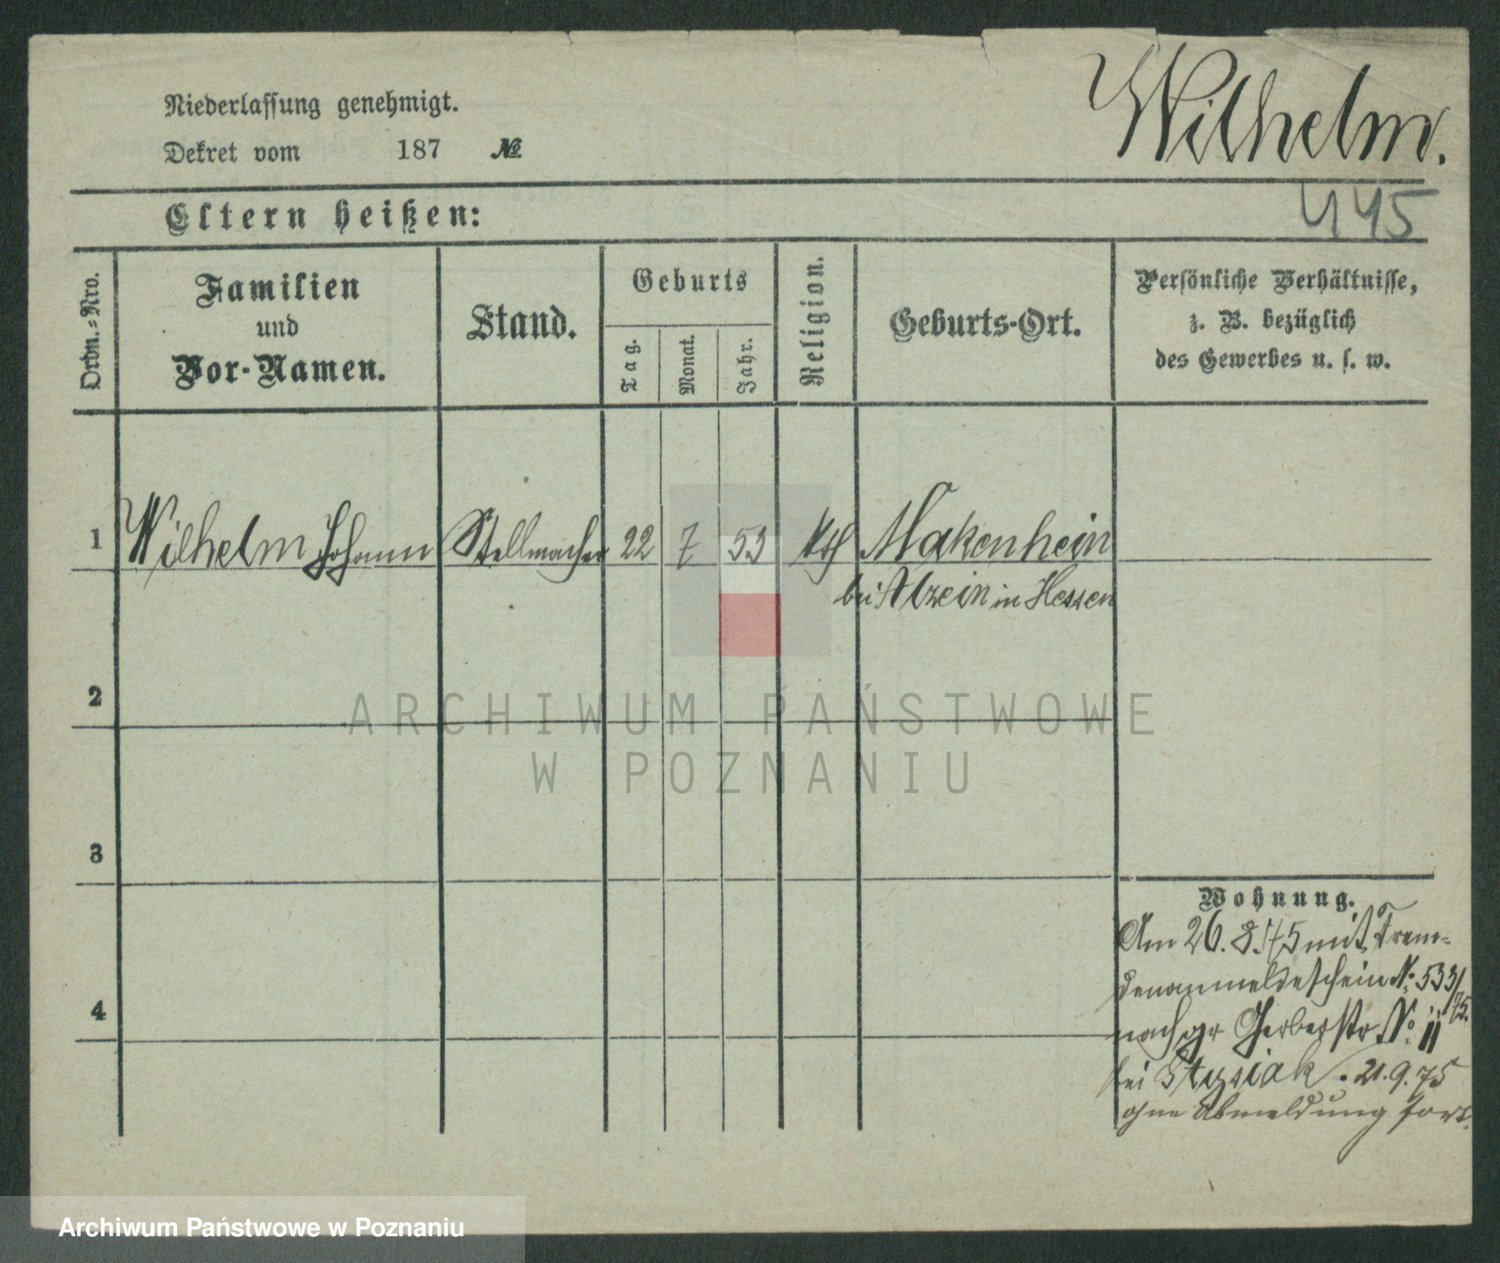 Wilhelm.
Niederlassung genehmigt.
Dekret vom 187 №
445
Eltern heißen:
Ordn.=Nro.
Familien
und
Vor-Namen.
Stand.
Geburts
Tag.
Monat.
Jahr.
Religion.
Geburts-Ort.
Persönliche Verhältnisse,
z. B. bezüglich
des Gewerbes u. s. w.
1 Wilhelm Johann Stellmacher 22 7 53 kth Makenhein
bei Alzein in Hessen
2
3
4
Wohnung.
Am 26. 8. 75 mit Frem-
denanmeldeschein № 533/75.
nach gr Gerberstr № 11
bei Stysiak. 21. 9. 75
ohne Abmeldung fort.
ARCHIWUM PAŃSTWOWE
W POZNANIU
Archiwum Państwowe w Poznaniu